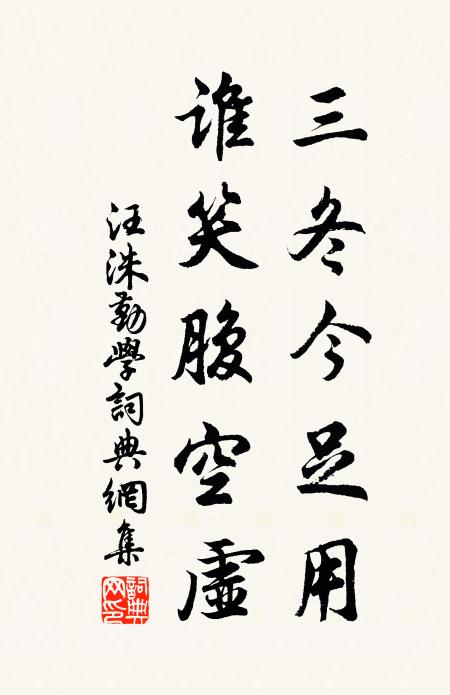 三冬今足用
谁笑腹空虚
汪洙勤學詞典網集
詞典網印